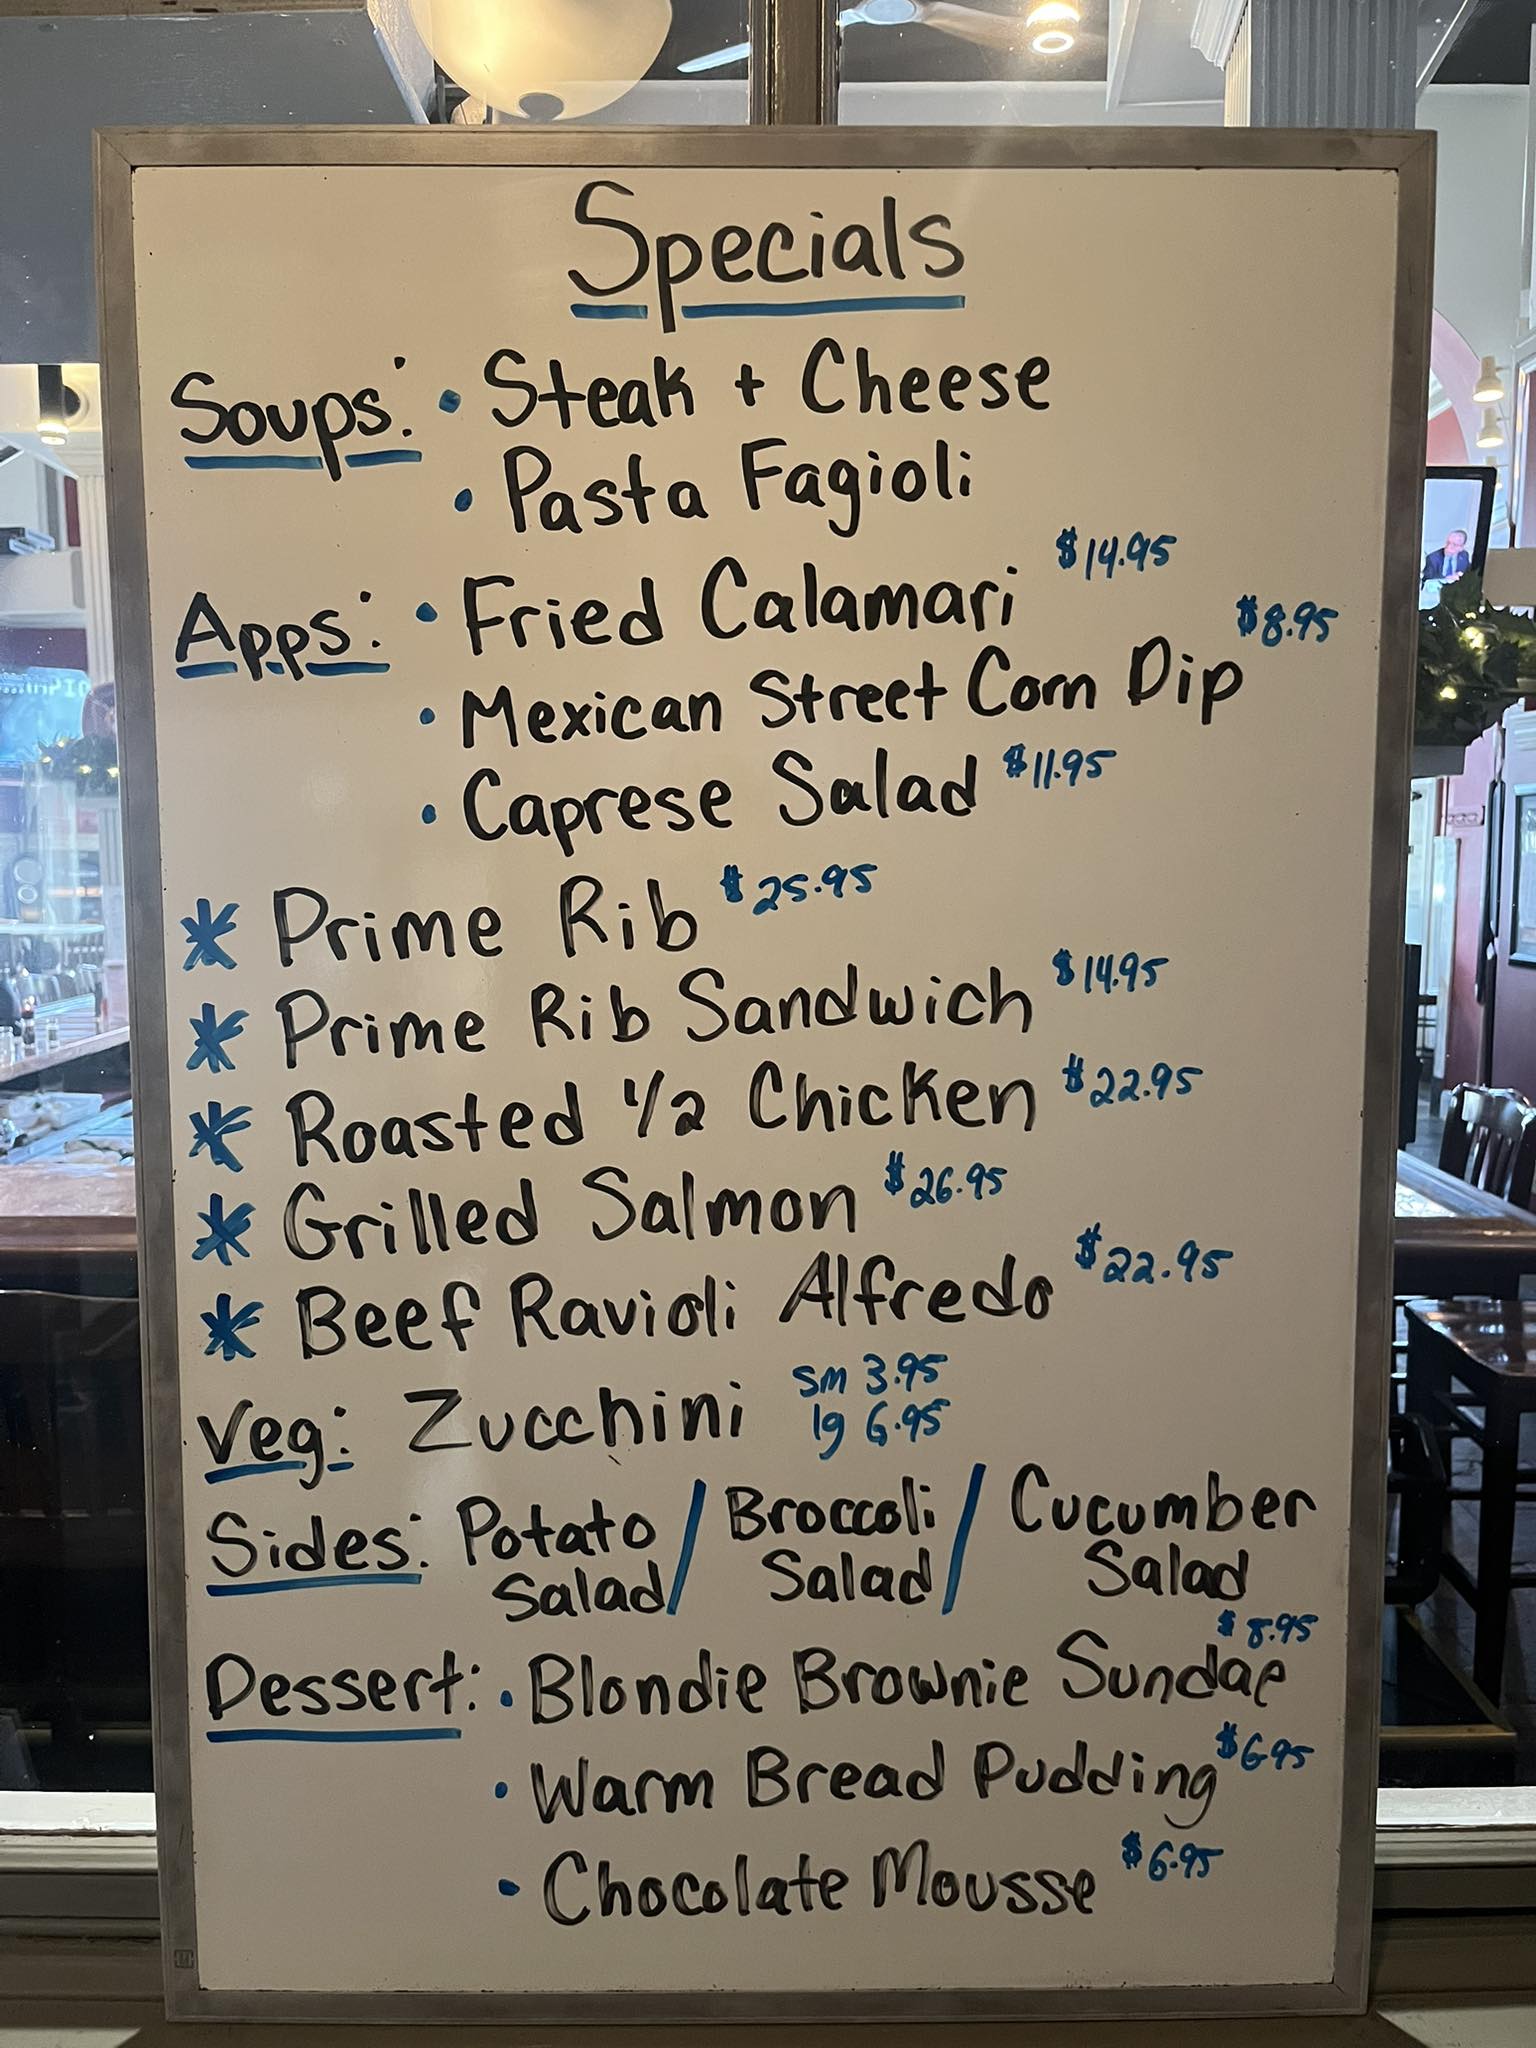 Specials
Soups: • Steak + Cheese
• Pasta Fagioli
Apps: • Fried Calamari $14.95
• Mexican Street Corn Dip $8.95
• Caprese Salad $11.95
* Prime Rib $25.95
* Prime Rib Sandwich $14.95
* Roasted 1/2 Chicken $22.95
* Grilled Salmon $26.95
* Beef Ravioli Alfredo $22.95
Veg: Zucchini sm 3.95
lg 6.95
Sides: Potato Salad / Broccoli Salad / Cucumber Salad
Dessert: • Blondie Brownie Sundae $8.95
• Warm Bread Pudding $6.95
• Chocolate Mousse $6.95